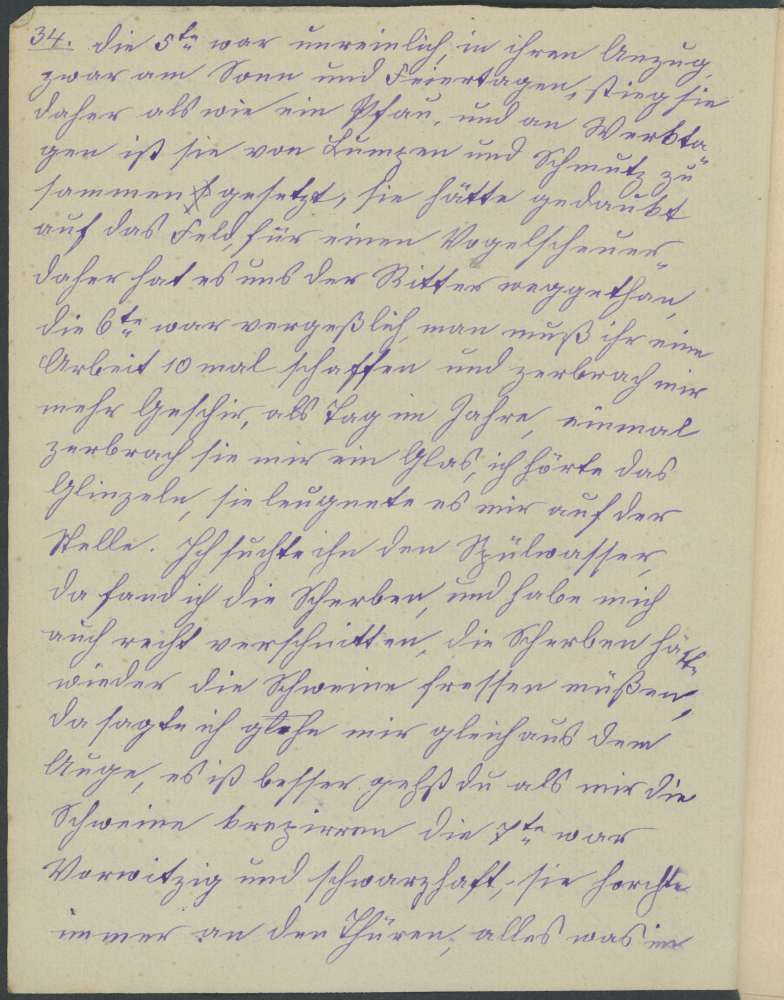 34. die 5te war unreinlich, in ihren Anzug,
zwar am Sonn und Feiertagen, stieg sie
daher als wie ein Pfau, und an Werkta
gen ist sie von Lumpen und Schmutz zu"
sammen gesetzt, sie hätte gedaukt
auf das Feld, für einen Vogelscheuer
daher hat es uns der Ritter weggethan,
die 6te war vergeßlich, man muß ihr eine
Arbeit 10 mal schaffen und zerbrach mir
mehr Geschir, als Tag im Jahre, einmal
zerbrach sie mir ein Glas, ich hörte das
Glinzeln, sie leugnete es mir auf der
Stelle. Ich suchte ihn den Spülwasser,
da fand ich die Scherben, und habe mich
auch recht verschnitten, die Scherben hätt
wieder die Schweine fressen müßen,
da sagte ich gehe mir gleich aus dem
Auge, es ist besser gehst du als mir die
Schweine krepirren die 7te war
Vorwitzig und schwarzhaft, sie horchte
immer an den Thüren, alles was im